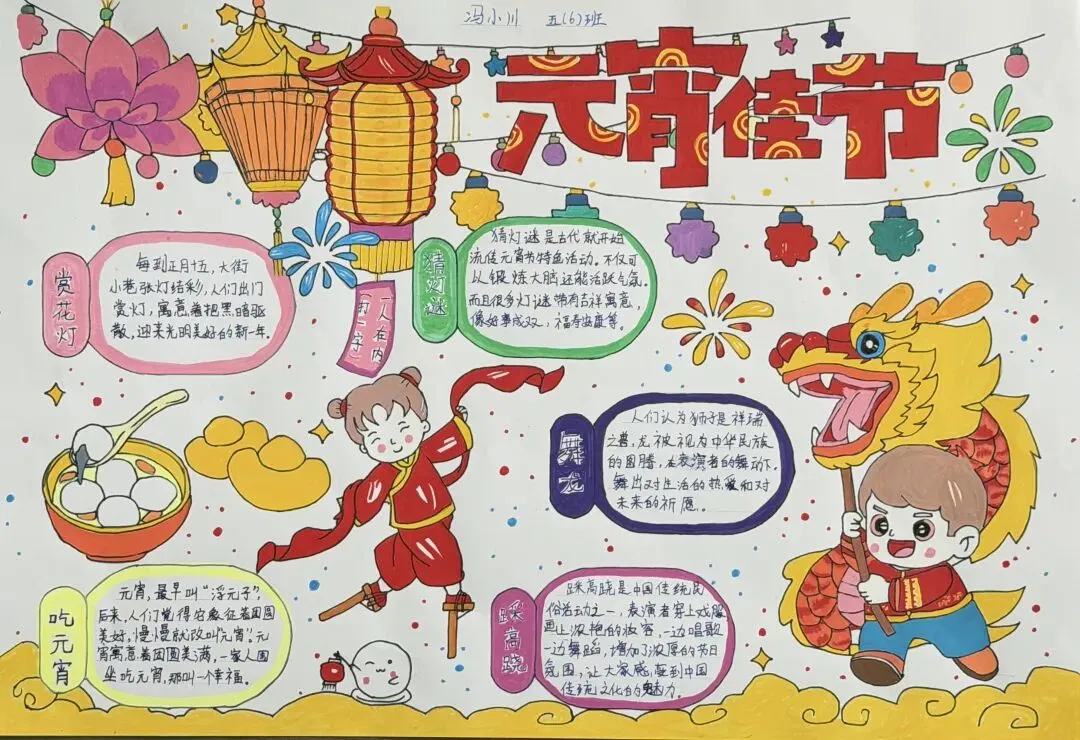 冯小川 五(6)班
元宵佳节
赏花灯
每到正月十五,大街
小巷张灯结彩,人们出门
赏灯,寓意着把黑暗驱
散,迎来光明美好的新一年。
猜灯谜
猜灯谜是古代就开始
流传元宵节特色活动。不仅可
以锻炼大脑还能活跃气氛。
而且很多灯谜带有吉祥寓意,
像好事成双,福寿安康等。
一人在内
打一字
舞龙
人们认为狮子是祥瑞
之兽,龙被视为中华民族
的图腾,在表演者的舞动下,
舞出对生活的热爱和对
未来的祈愿。
吃元宵
元宵,最早叫“浮元子”,
后来,人们觉得它象征着团圆
美好,慢慢就改叫“元宵”,元
宵寓意着团圆美满,一家人围
坐吃元宵,那叫一个幸福。
踩高跷
踩高跷是中国传统民
俗活动之一,表演者穿上戏服
画上浓艳的妆容,一边唱歌
一边舞蹈,增加了浓厚的节日
氛围,让大家感受到中国
传统文化的魅力。